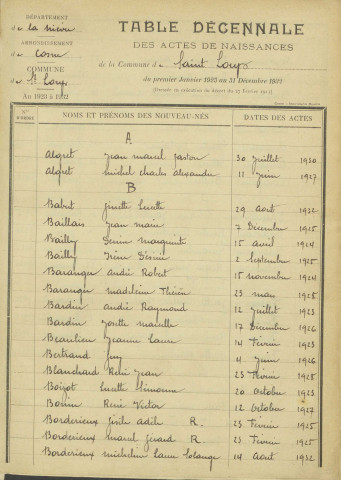 DÉPARTEMENT
de la Nièvre
ARRONDISSEMENT
de Cosne
COMMUNE
de St Loup
AN 1923 à 1932
TABLE DÉCENNALE
DES ACTES DE NAISSANCES
de la Commune de Saint Loup
du premier Janvier 1923 au 31 Décembre 1932
(Dressée en exécution du décret du 27 Février 1911)
NOMS ET PRÉNOMS DES NOUVEAU-NÉS DATES DES ACTES
A
Algret Jean Marcel Gaston 30 Juillet 1930
Algret Michel Charles Alexandre 11 Juin 1927
B
Babut Ginette Lucette 29 Août 1932
Baillais Jean Marie 7 Décembre 1925
Bailly Denise Marguerite 15 avril 1924
Bailly Irène Désirée 2 Septembre 1925
Baranger André Robert 15 novembre 1924
Baranger Madeleine Thérèse 23 mai 1928
Bardin André Raymond 12 Juillet 1923
Bardin Josette Marcelle 17 Décembre 1926
Beaulieu Jeanne Laure 14 Février 1923
Bertrand Guy 4 Juin 1926
Blanchard René Jean 23 Février 1928
Boizot Lucette Simonne 20 Octobre 1923
Bonin René Victor 12 Octobre 1927
Bordérieux Gisèle Adèle R. 23 Février 1925
Bordérieux Marcel Girard R. 23 Février 1925
Bordérieux Micheline Laure Solange 14 Août 1932